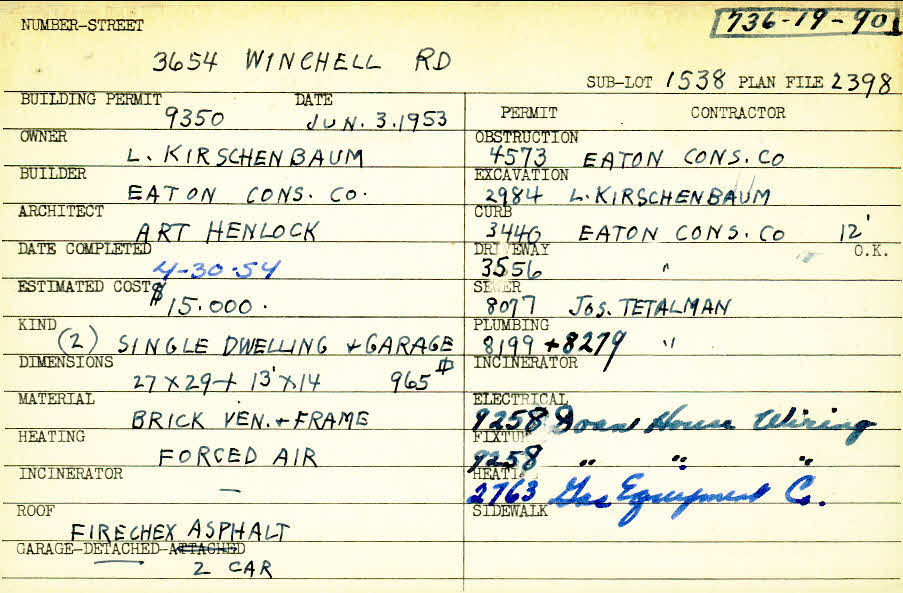 NUMBER-STREET
736-19-90
3654 WINCHELL RD
SUB-LOT 1538 PLAN FILE 2398
BUILDING PERMIT DATE
9350 JUN. 3. 1953
OWNER
L. KIRSCHENBAUM
BUILDER
EATON CONS. CO.
ARCHITECT
ART HENLOCK
DATE COMPLETED
4-30-54
ESTIMATED COST
$15.000.
KIND
(2) SINGLE DWELLING + GARAGE
DIMENSIONS
27 X 29 + 13' X 14 965 ▯'
MATERIAL
BRICK VEN. + FRAME
HEATING
FORCED AIR
INCINERATOR
—
ROOF
FIRECHEX ASPHALT
GARAGE-DETACHED-ATTACHED
2 CAR
PERMIT CONTRACTOR
OBSTRUCTION
4573 EATON CONS. CO
EXCAVATION
2984 L. KIRSCHENBAUM
CURB
3440 EATON CONS. CO 12'
DRIVEWAY O.K.
3556 "
SEWER
8077 JOS. TETALMAN
PLUMBING
8199 + 8279 "
INCINERATOR
ELECTRICAL
9258 Doan House Wiring
FIXTUR
9258 " " "
HEATI
2763 Gas Equipment Co.
SIDEWALK